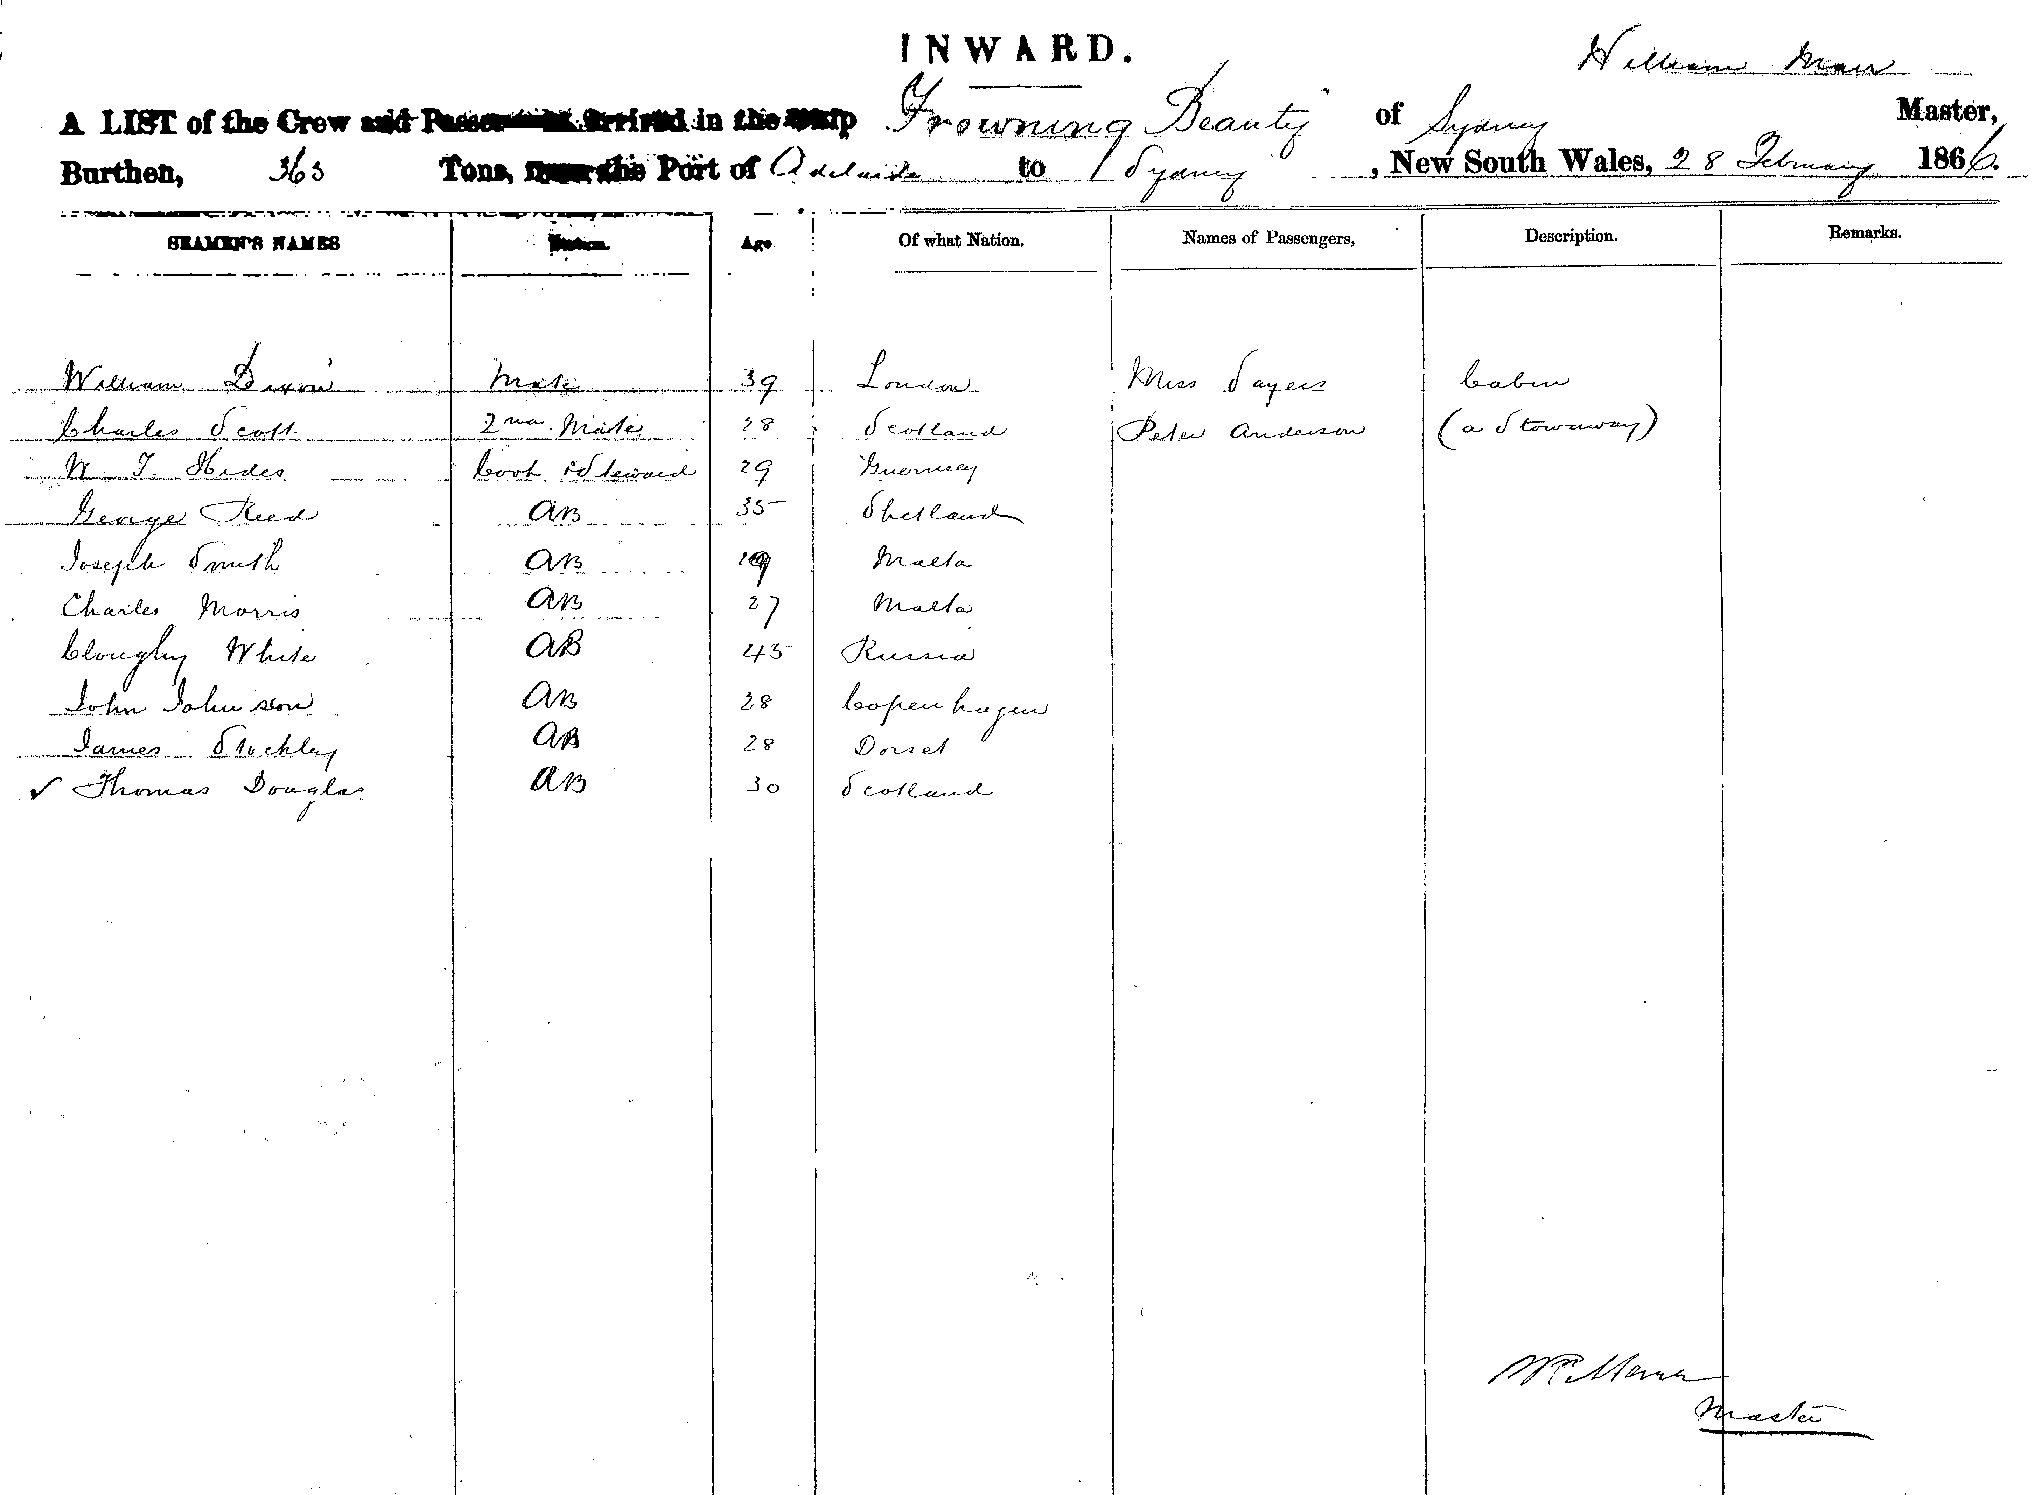 INWARD.
William Marr
A LIST of the Crew and Passengers arrived in the Ship Frowning Beauty of Sydney Master,
Burthen, 363 Tons, from the Port of Adelaide to Sydney, New South Wales, 28 February 1866.
SEAMEN'S NAMES Station. Age Of what Nation. Names of Passengers, Description. Remarks.
William Dixon Mate 39 London Miss Sayers Cabin
Charles Scott 2nd Mate 28 Scotland Peter Anderson (a Stowaway)
W. T. Hides Cook & Steward 29 Guernsey
George Reed AB 35 Shetland
Joseph Smith AB Malta
Charles Morris AB 27 Malta
Cloughy White AB 45 Russia
John Johnson AB 28 Copenhagen
James Stockley AB 28 Dorset
✓ Thomas Douglas AB 30 Scotland
Master